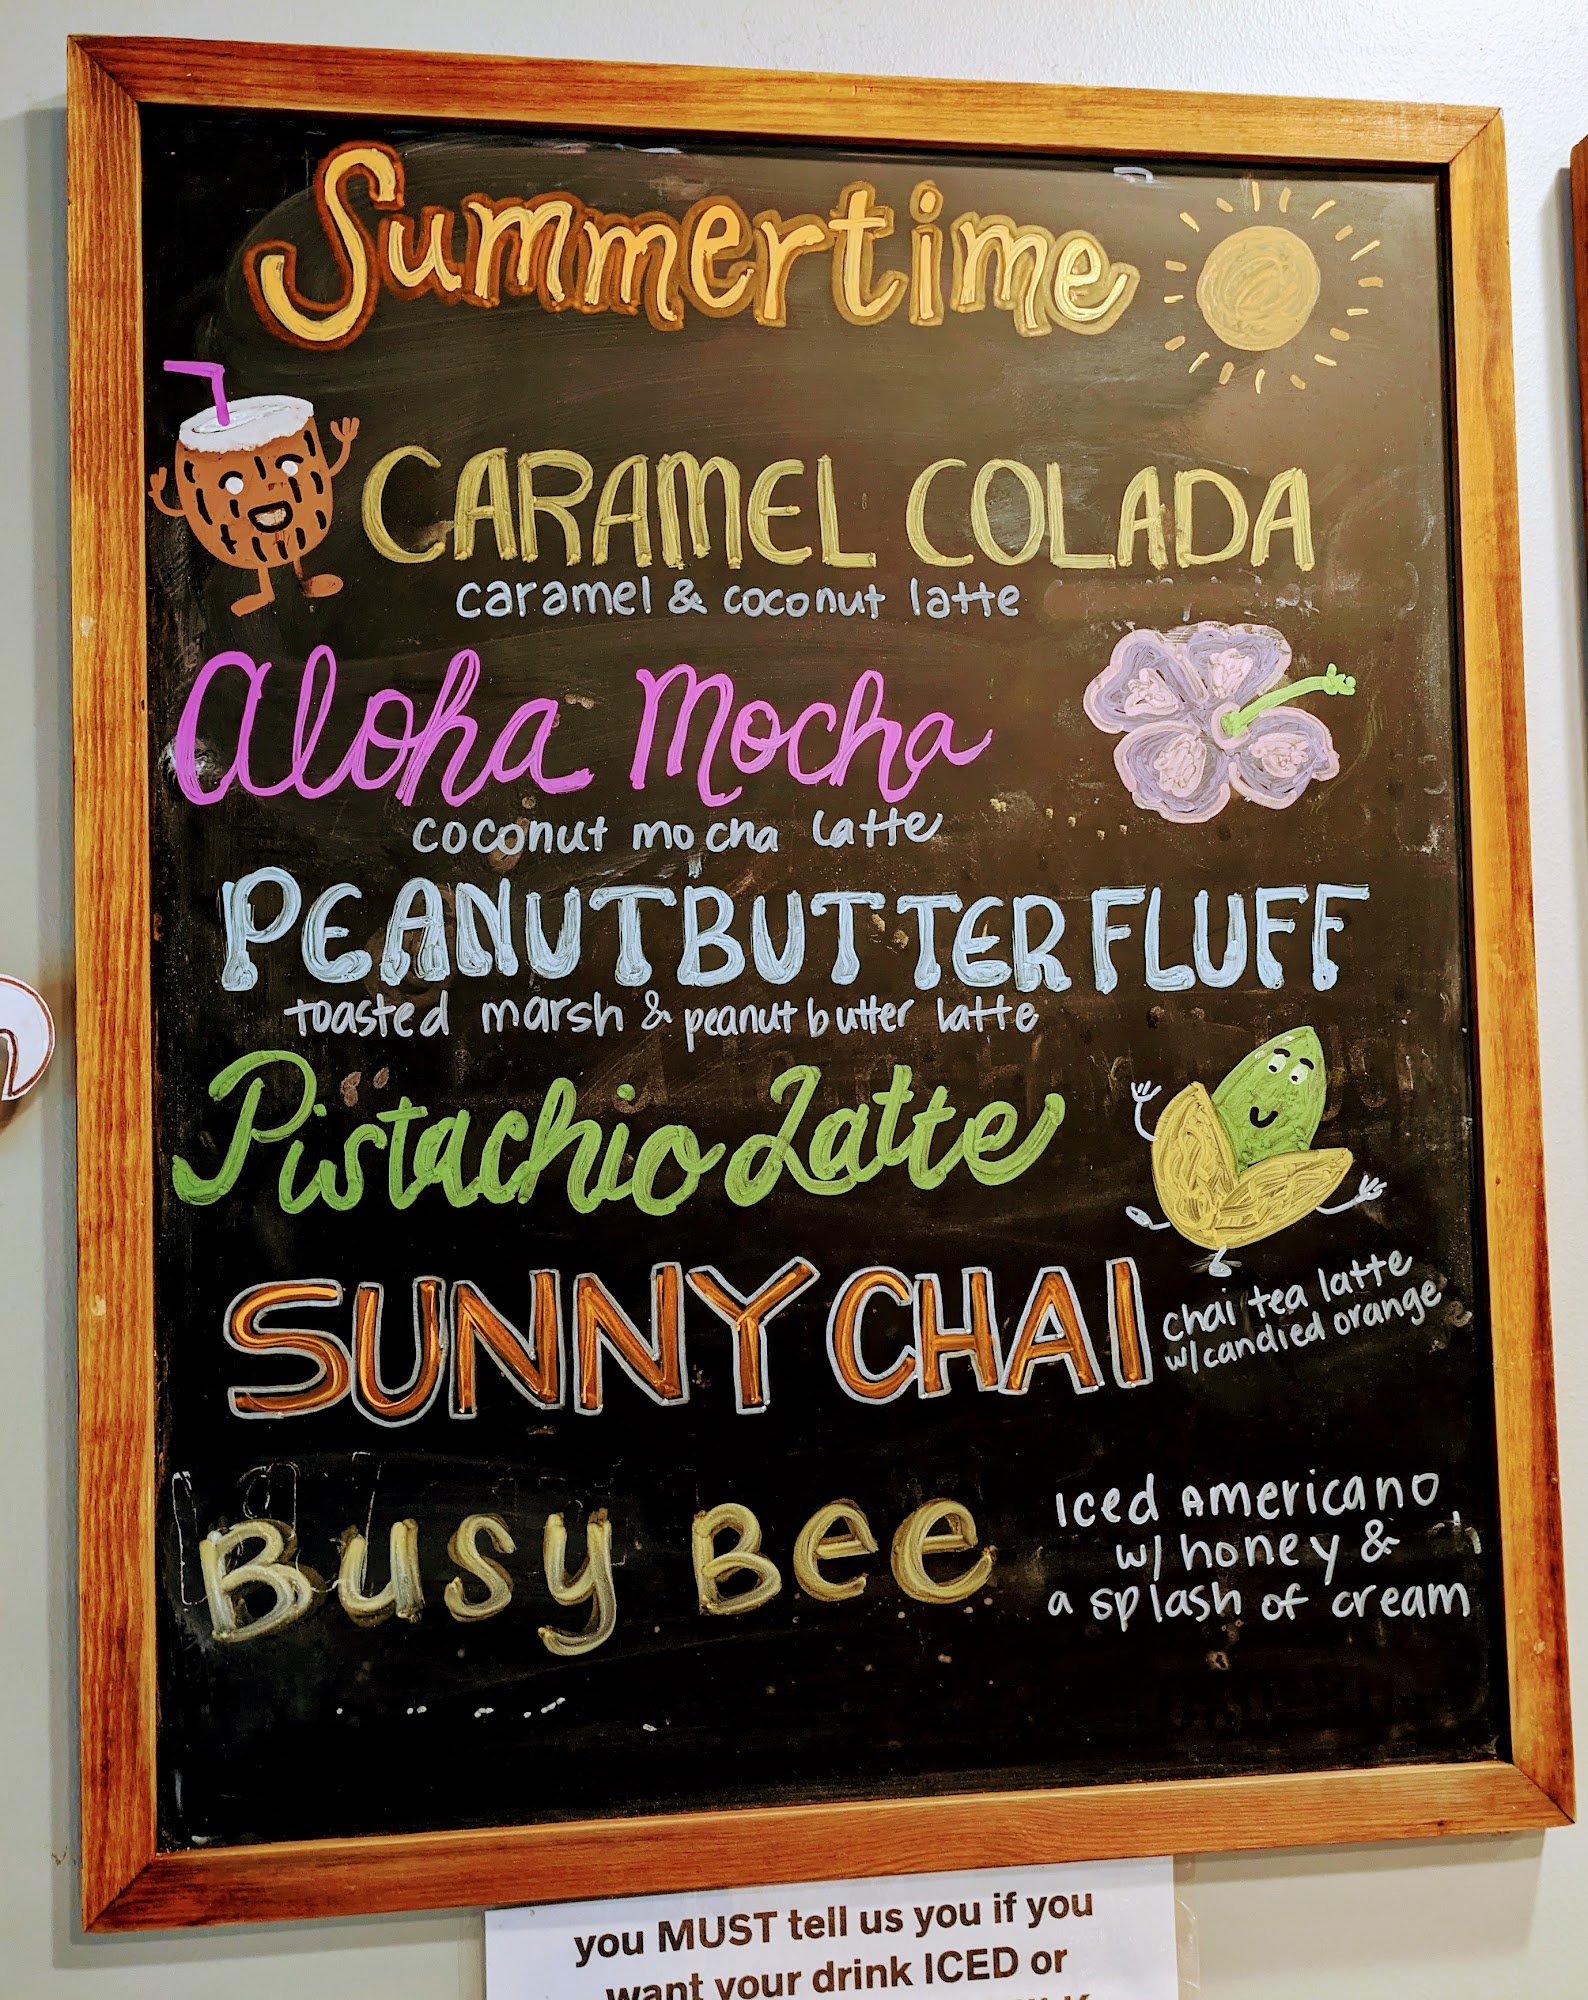 Summertime
CARAMEL COLADA
caramel & coconut latte
Aloha Mocha
coconut mocha latte
PEANUT BUTTER FLUFF
toasted marsh & peanut butter latte
Pistachio Latte
SUNNY CHAI
chai tea latte
w/candied orange
Busy Bee
Iced Americano
w/ honey &
a splash of cream
you MUST tell us you if you
want your drink ICED or